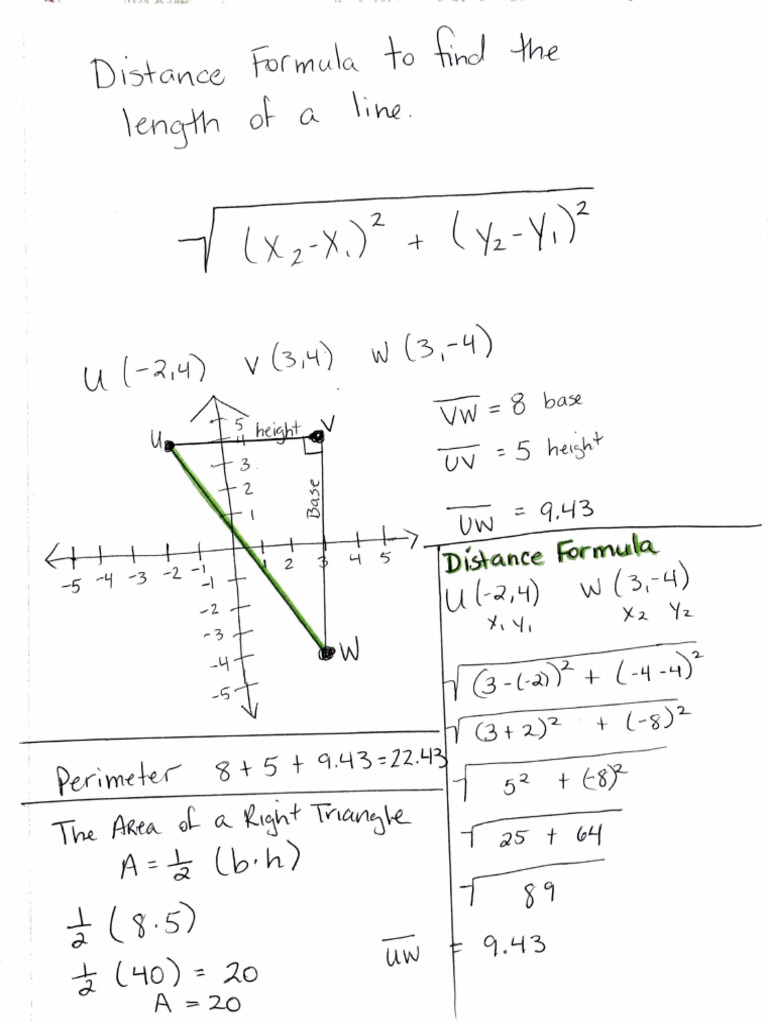 Distance Formula to find the
length of a line.
√(X₂-X₁)² + (Y₂-Y₁)²
U (-2,4) V (3,4) W (3,-4)
VW = 8 base
UV = 5 height
UW = 9.43
U height V
5
4
3
2
1
Base
-5 -4 -3 -2 -1 1 2 3 4 5
-1
-2
-3
-4
-5
W
Distance Formula
U (-2,4) W (3,-4)
X₁ Y₁ X₂ Y₂
√(3-(-2))² + (-4-4)²
√(3+2)² + (-8)²
√5² + (-8)²
√25 + 64
√89
UW = 9.43
Perimeter 8 + 5 + 9.43 = 22.43
The Area of a Right Triangle
A = 1/2 (b·h)
1/2 (8·5)
1/2 (40) = 20
A = 20